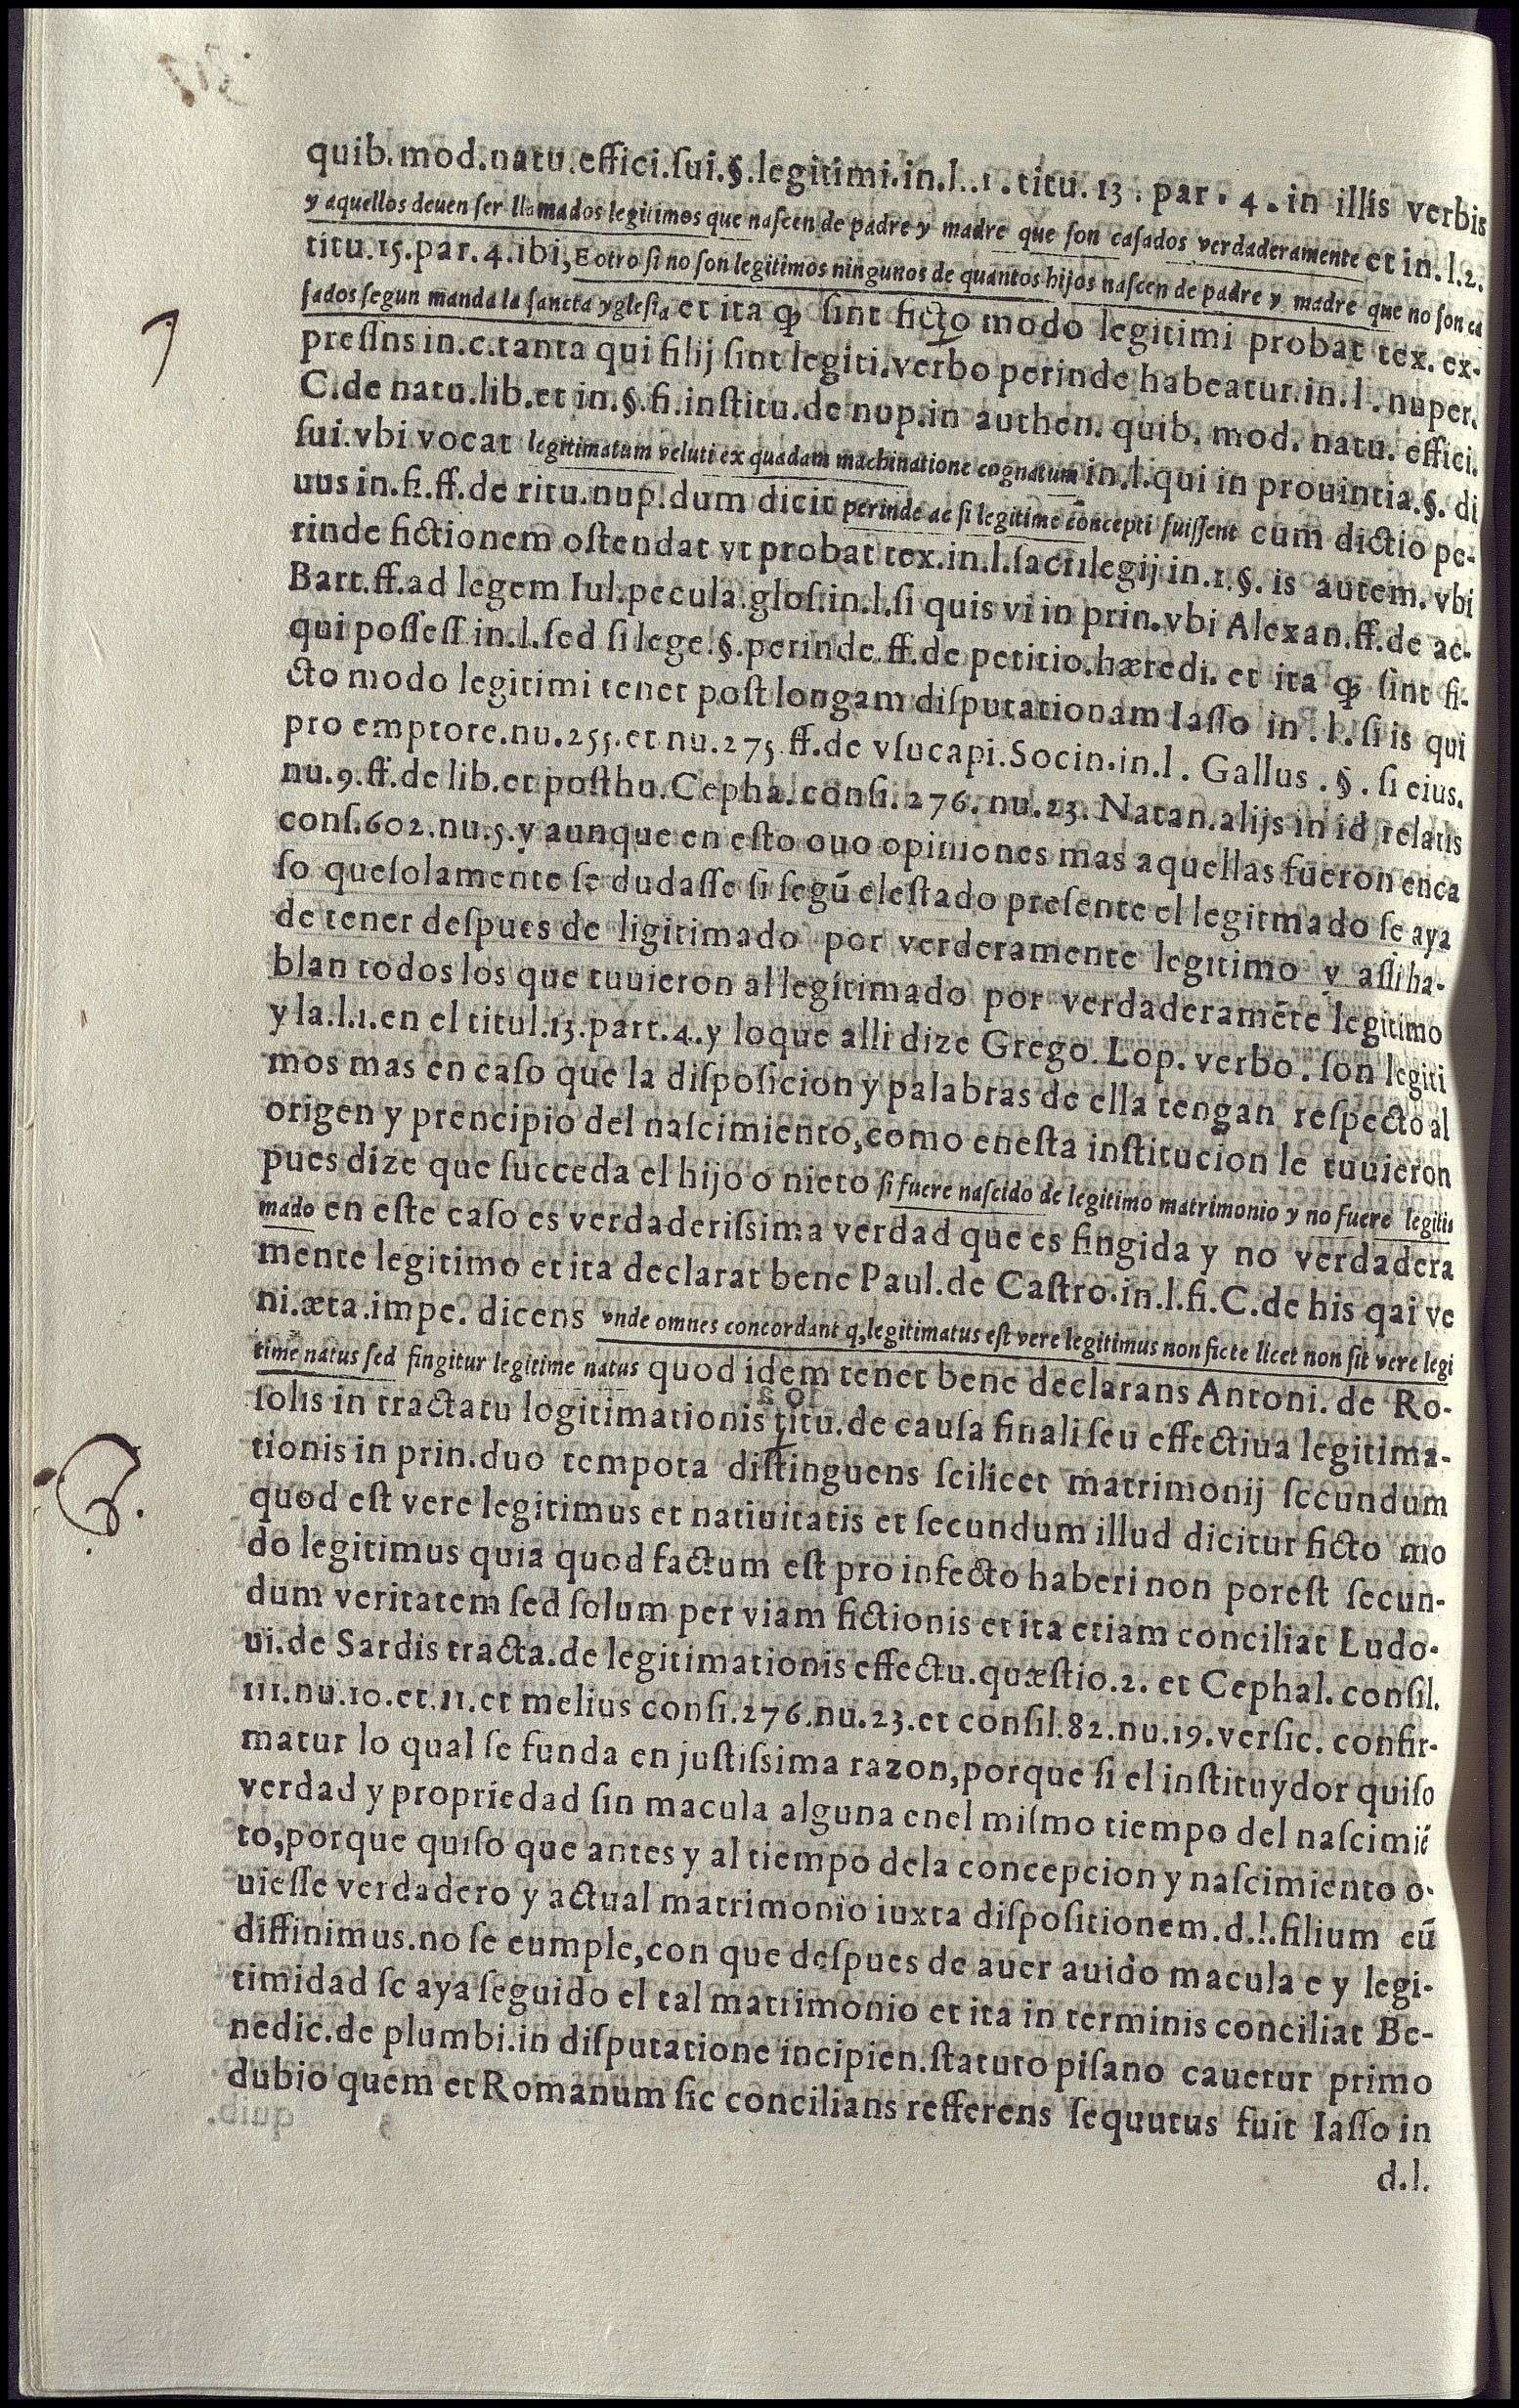 quib.mod.natu.effici.sui.§.legitimi.in.l..1.titu.13.par.4.in illis verbis
y aquellos deuen ser llamados legitimos que nascen de padre y madre que son casados verdaderamente et in.l.2.
titu.15.par.4.ibi, E otro si no son legitimos ningunos de quantos hijos nascen de padre y madre que no son ca
sados segun manda la sancta yglesia et ita ꝙ sint ficto modo legitimi probat tex.ex-
pressns in.c.tanta qui filij sint legiti.verbo perinde habeatur.in.l.nuper.
C.de natu.lib.et in.§.fi.institu.de nup.in authen.quib.mod.natu.effici.
sui.vbi vocat legitimatum veluti ex quadam machinatione cognatum in.l.qui in prouintia.§.di
uus in.fi.ff.de ritu.nup.dum dicit perinde ac si legitime concepti fuissent cum dictio pe-
rinde fictionem ostendat vt probat tex.in.l.sacrilegij.in.1.§.is autem.vbi
Bart.ff.ad legem Iul.pecula.glos.in.l.si quis vi in prin.vbi Alexan.ff.de ac-
qui possess in.l.sed si lege.§.perinde.ff.de petitio.hæredi.et ita ꝙ sint fi-
cto modo legitimi tenet post longam disputationam Iasso in.l.si is qui
pro emptore.nu.255.et nu.275.ff.de vsucapi.Socin.in.l.Gallus.§.si eius.
nu.9.ff.de lib.et posthu.Cepha.consi.276.nu.23.Natan.alijs in id relatis
cons.602.nu.5.y aunque en esto ouo opiniones mas aquellas fueron enca
so quesolamente se dudasse si segū elestado presente el legitmado se aya
de tener despues de ligitimado por verderamente legitimo y assi ha-
blan todos los que tuuieron al legitimado por verdaderamēte legitimo
y la.l.1.en el titul.13.part.4.y loque alli dize Grego.Lop.verbo.son legiti
mos mas en caso que la disposicion y palabras de ella tengan respecto al
origen y prencipio del nascimiento, como enesta institucion le tuuieron
pues dize que succeda el hijo o nieto si fuere nascido de legitimo matrimonio y no fuere legiti-
mado en este caso es verdaderissima verdad que es fingida y no verdadera
mente legitimo et ita declarat bene Paul.de Castro.in.l.fi.C.de his qai ve
ni.æta.impe.dicens vnde omnes concordant q, legitimatus est vere legitimus non ficte licet non sit vere legi
time natus sed fingitur legitime natus quod idem tenet bene declarans Antoni.de Ro-
solis in tractatu logitimationis titu.de causa finali seu effectiua legitima-
tionis in prin.duo tempora distinguens scilicet matrimonij secundum
quod est vere legitimus et natiuitatis et secundum illud dicitur ficto mo
do legitimus quia quod factum est pro infecto haberi non porest secun-
dum veritatem sed solum per viam fictionis et ita etiam conciliat Ludo-
ui.de Sardis tracta.de legitimationis effectu.quæstio.2.et Cephal.consil.
111.nu.10.et.11.et melius consi.276.nu.23.et consil.82.nu.19.versic.confir-
matur lo qual se funda en justissima razon, porque si el instituydor quiso
verdad y propriedad sin macula alguna enel mismo tiempo del nascimiē
to, porque quiso que antes y al tiempo dela concepcion y nascimiento o-
uiesse verdadero y actual matrimonio iuxta dispositionem.d.l.filium eū
diffinimus.no se eumple, con que despues de auer auido macula e y legi-
timidad se aya seguido el tal matrimonio et ita in terminis conciliat Be-
nedic.de plumbi.in disputatione incipien.statuto pisano cauetur primo
dubio quem et Romanum sic concilians refferens sequutus fuit Iasso in
d.l.